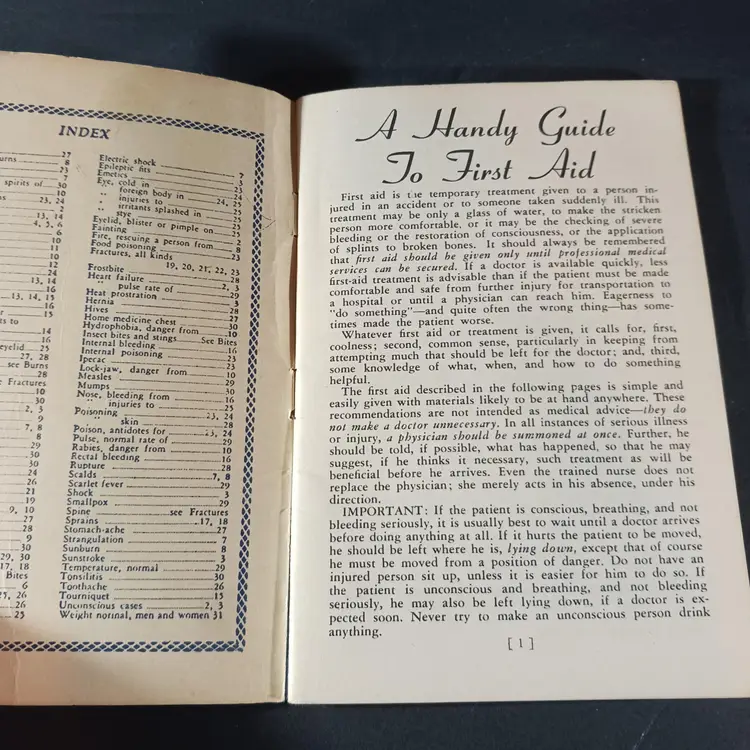 INDEX
27
8
23
7
spirits of 30
10
23, 24
2
13, 14
4, 5, 6
6
10
11
10
12
24
10
16
13, 14, 15
16
15
14
16
eyelid 25
27, 28
see Burns
28
see Fractures
10
30
2, 3
9
7, 8
8
29
23
28
26
21
19
9, 10
27
28
9
30
29, 30
17, 18
Bites
6
25, 26
26
25
Electric shock 7
Epileptic fits 3
Emetics 23
Eye, cold in
" foreign body in 24, 25
" injuries to 25
" irritants splashed in 25
" stye 25
Eyelid, blister or pimple on 25
Fainting 2
Fire, rescuing a person from 8
Food poisoning 23
Fractures, all kinds
19, 20, 21, 22, 23
Frostbite
Heart failure 2, 3
" pulse rate of 29
Heat prostration 3
Hernia 28
Hives 28
Home medicine chest 30
Hydrophobia, danger from 10
Insect bites and stings See Bites
Internal bleeding 16
Internal poisoning 23
Ipecac 23
Lock-jaw, danger from 10
Measles 29
Mumps 30
Nose, bleeding from 16
" injuries to 25
Poisoning 23, 24
" skin 28
Poison, antidotes for 23, 24
Pulse, normal rate of 29
Rabies, danger from 10
Rectal bleeding 16
Rupture 28
Scalds 7, 8
Scarlet fever 29
Shock 3
Smallpox 29
Spine see Fractures
Sprains 17, 18
Stomach-ache 27
Strangulation 7
Sunburn 8
Sunstroke 3
Temperature, normal 29
Tonsilitis 30
Toothache 26
Tourniquet 15
Unconscious cases 2, 3
Weight normal, men and women 31
A Handy Guide
To First Aid
First aid is the temporary treatment given to a person in-
jured in an accident or to someone taken suddenly ill. This
treatment may be only a glass of water, to make the stricken
person more comfortable, or it may be the checking of severe
bleeding or the restoration of consciousness, or the application
of splints to broken bones. It should always be remembered
that first aid should be given only until professional medical
services can be secured. If a doctor is available quickly, less
first-aid treatment is advisable than if the patient must be made
comfortable and safe from further injury for transportation to
a hospital or until a physician can reach him. Eagerness to
"do something"—and quite often the wrong thing—has some-
times made the patient worse.
Whatever first aid or treatment is given, it calls for, first,
coolness; second, common sense, particularly in keeping from
attempting much that should be left for the doctor; and, third,
some knowledge of what, when, and how to do something
helpful.
The first aid described in the following pages is simple and
easily given with materials likely to be at hand anywhere. These
recommendations are not intended as medical advice—they do
not make a doctor unnecessary. In all instances of serious illness
or injury, a physician should be summoned at once. Further, he
should be told, if possible, what has happened, so that he may
suggest, if he thinks it necessary, such treatment as will be
beneficial before he arrives. Even the trained nurse does not
replace the physician; she merely acts in his absence, under his
direction.
IMPORTANT: If the patient is conscious, breathing, and not
bleeding seriously, it is usually best to wait until a doctor arrives
before doing anything at all. If it hurts the patient to be moved,
he should be left where he is, lying down, except that of course
he must be moved from a position of danger. Do not have an
injured person sit up, unless it is easier for him to do so. If
the patient is unconscious and breathing, and not bleeding
seriously, he may also be left lying down, if a doctor is ex-
pected soon. Never try to make an unconscious person drink
anything.
[ 1 ]